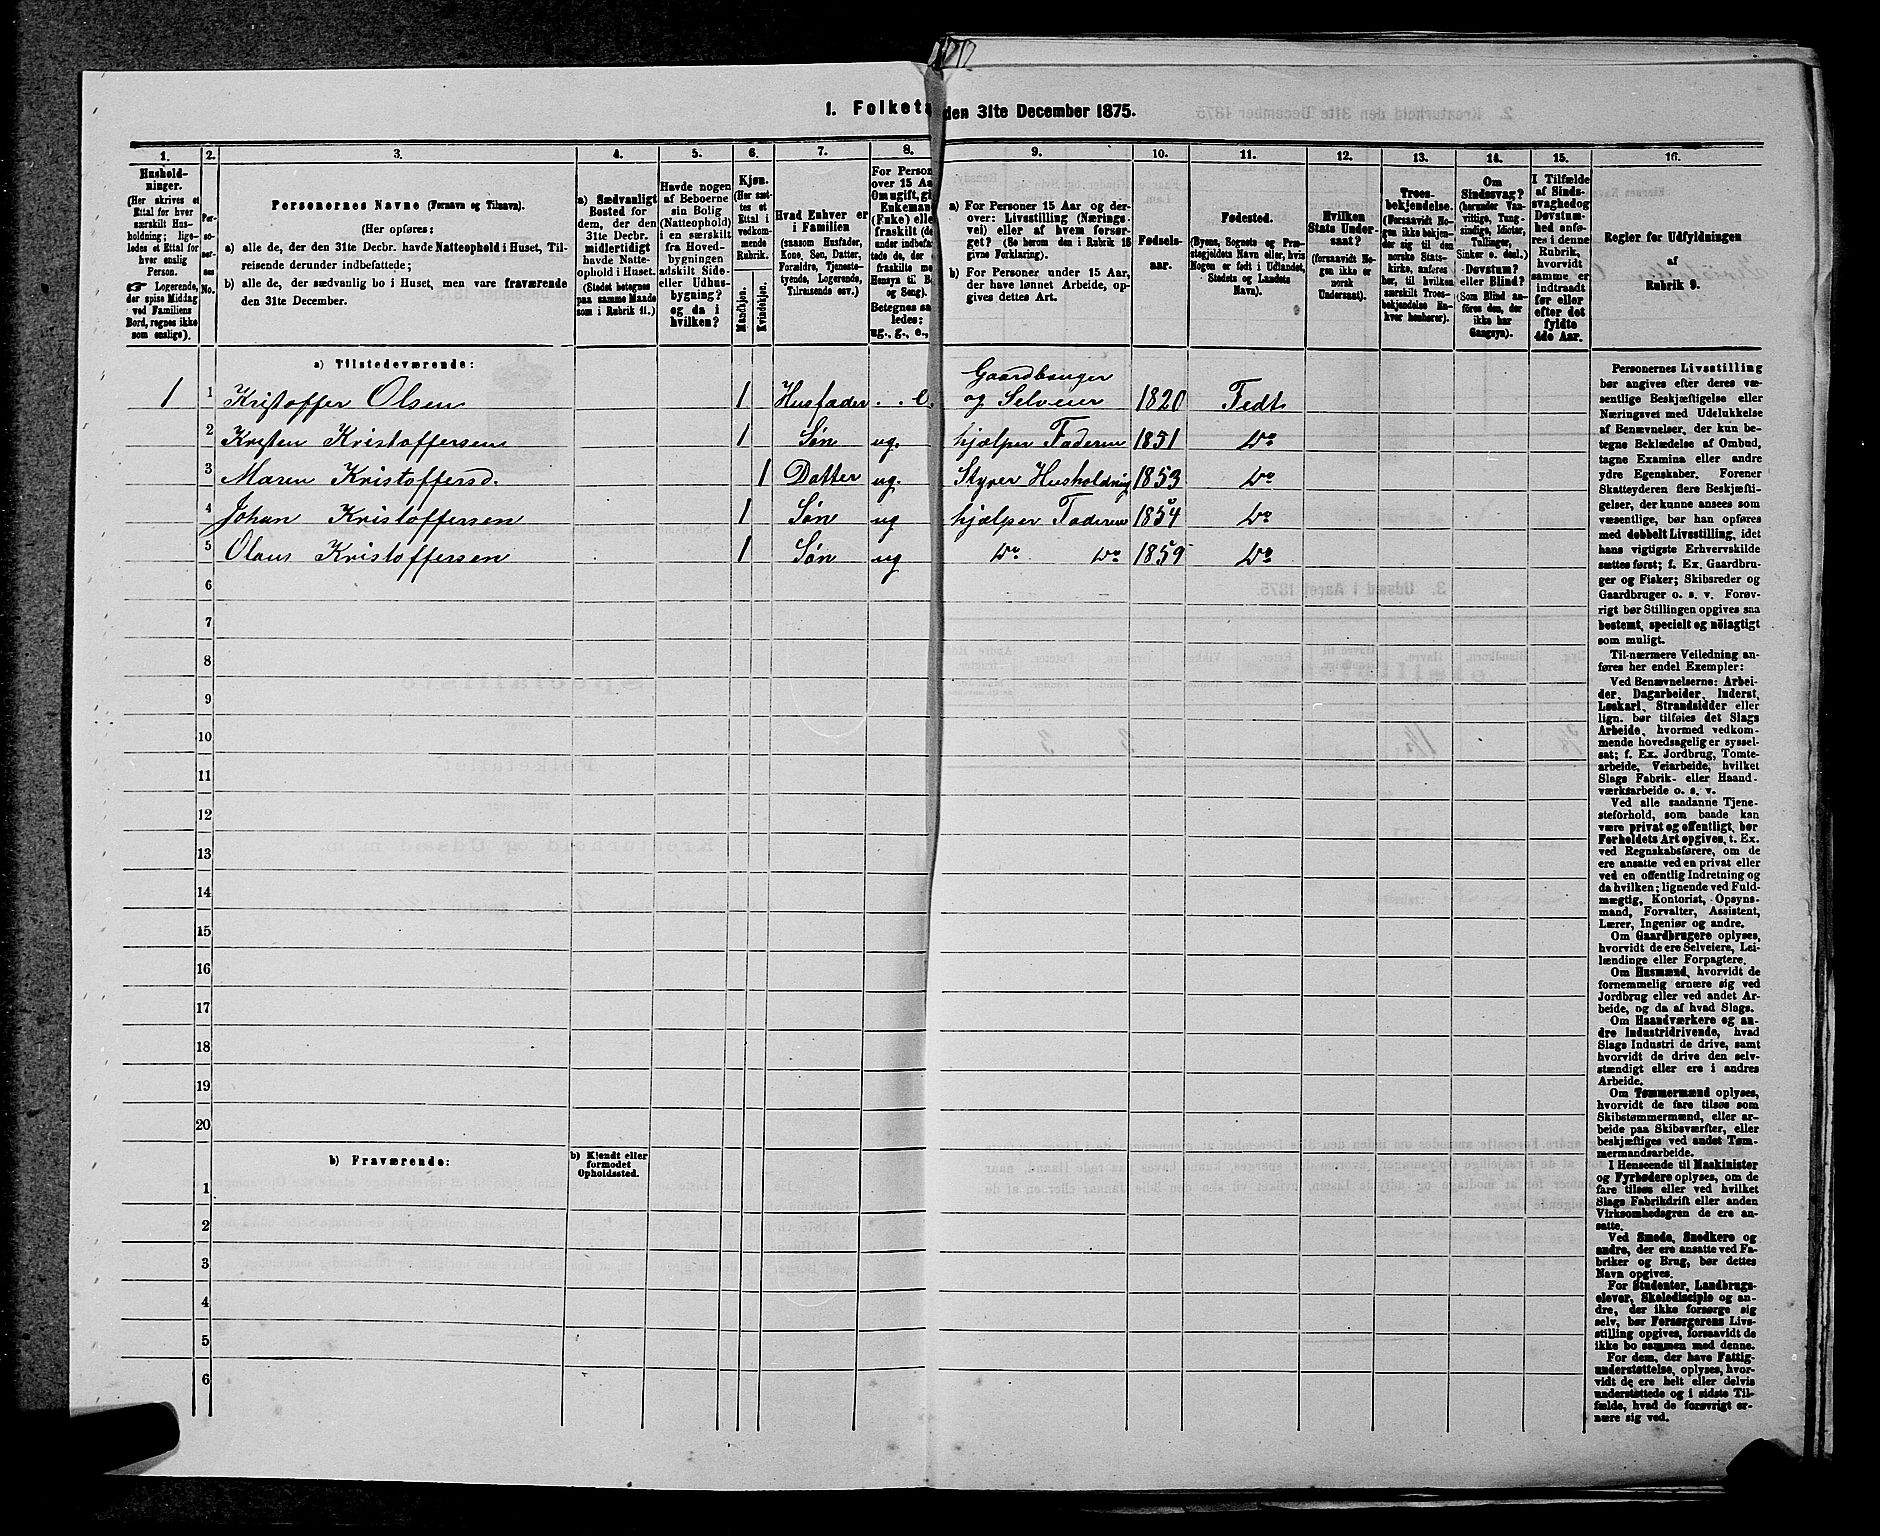 1. Folketæ
den 31te December 1875.
1.
2.
3.
4.
5.
6.
7.
8.
9.
10.
11.
12.
13.
14.
15.
16.
Hushold-
ninger.
(Her skrives et
Ettal for hver
særskilt Hus-
holdning; lige-
ledes et Ettal for
hver enslig
Person.
☞ Logerende,
der spise Middag
ved Familiens
Bord, regnes ikke
som enslige).
Per-
so-
ner-
nes
No.
Personernes Navne (Fornavn og Tilnavn).
(Her opføres:
a) alle de, der den 31te Decbr. havde Natteophold i Huset, Til-
reisende derunder indbefattede;
b) alle de, der sædvanlig bo i Huset, men vare fraværende
den 31te December.
a) Sædvanligt
Bosted for
dem, der den
31te Decbr.
midlertidigt
havde Natte-
ophold i Huset.
(Stedet betegnes
paa samme Maade
som i Rubrik 11.)
Havde nogen
af Beboerne
sin Bolig
(Natteophold)
i en særskilt
fra Hoved-
bygningen
adskilt Side-
eller Udhus-
bygning?
og da i
hvilken?
Kjøn.
(Her sæt-
tes et
Ettal i
vedkom-
mende
Rubrik.
Mandkjøn.
Kvindekjøn.
Hvad Enhver er
i Familien
(saasom Husfader,
Kone, Søn, Datter,
Forældre, Tjeneste-
tyende, Logerende,
Tilreisende osv.)
For Person
over 15 Aa
Om ugift, gi
Enkemand
(Enke) elle
fraskilt (de
under indbefat-
tede de, der
fraskilte me
Hensyn til Bo
og Seng).
Betegnes saa
ledes:
ug., g., e.,
a) For Personer 15 Aar og der-
over: Livsstilling (Nærings-
vei) eller af hvem forsør-
get? (Se herom den i Rubrik 16
givne Forklaring).
b) For Personer under 15 Aar,
der have lønnet Arbeide, op-
gives dettes Art.
Fødsels-
aar.
Fødested.
(Byens, Sognets og Præ-
stegjeldets Navn eller, hvis
Nogen er født i Udlandet,
Stedets og Landets
Navn).
Hvilken
Stats Under-
saat?
(forsaavidt No-
gen ikke er
norsk
Undersaat).
Troes-
bekjendelse.
(Forsaavidt No-
gen ikke bekjen-
der sig til den
norske Stats-
kirke, anføres
her, til hvilken
særskilt Troes-
bekjendelse En-
hver henhører).
Om
Sindssvag?
(herunder Van-
vittige, Tung-
sindige, Idioter,
Tullinger,
Sinker o. desl.).
Døvstum?
eller Blind?
(Som Blind an-
føres den, der
ikke har
Gangsyn).
I Tilfælde
af Sinds-
svaghed og
Døvstum-
hed anfø-
res i denne
Rubrik,
hvorvidt
samme er
indtraadt
før eller
efter det
fyldte
4de Aar.
Regler for Udfyldningen
af
Rubrik 9.
a) Tilstedeværende:
1 1 Kristoffer Olsen 1 Husfader e. Gaardbruger
og Selveier 1820 Fedt
2 Kristen Kristoffersen 1 Søn ug. hjælper Faderen 1851 Do
3 Maren Kristoffersd. 1 Datter ug. Styrer Husholdning 1853 Do
4 Johan Kristoffersen 1 Søn ug hjælper Faderen 1854 Do
5 Olaus Kristoffersen 1 Søn ug Do Do 1859 Do
6
7
8
9
10
11
12
13
14
15
16
17
18
19
20
b) Fraværende:
b) Kjendt eller
formodet
Opholdssted.
1
2
3
4
5
6
Personernes Livsstilling
bør angives efter deres væ-
sentlige Beskjæftigelse eller
Næringsvei med Udelukkelse
af Benævnelser, der kun be-
tegne Beklædelse af Ombud,
tagne Examina eller andre
ydre Egenskaber. Forener
Skatteyderen flere Beskjæfti-
gelser, der kunne ansees som
væsentlige, bør han opføres
med dobbelt Livsstilling, idet
hans vigtigste Erhvervskilde
sættes først; f. Ex. Gaardbru-
ger og Fisker; Skibsreder og
Gaardbruger o. s. v. Forøv-
rigt bør Stillingen opgives saa
bestemt, specielt og nøiagtigt
som muligt.
Til nærmere Veiledning an-
føres her endel Exempler:
Ved Benævnelserne: Arbei-
der, Dagarbeider, Inderst,
Løskarl, Strandsidder eller
lign. bør tilføies det Slags
Arbeide, hvormed vedkom-
mende hovedsagelig er syssel-
sat; f. Ex. Jordbrug, Tomte-
arbeide, Veiarbeide, hvilket
Slags Fabrik- eller Haand-
værksarbeide o. s. v.
Ved alle saadanne Tjene-
steforhold, som baade kan
være privat og offentligt, bør
Forholdets Art opgives, t. Ex.
ved Regnskabsførere, om de
ere ansatte ved en privat eller
ved en offentlig Indretning og
da hvilken; lignende ved Fuld-
mægtig, Kontorist, Opsyns-
mand, Forvalter, Assistent,
Lærer, Ingeniør og andre.
Om Gaardbrugere oplyses,
hvorvidt de ere Selveiere, Lei-
lændinge eller Forpagtere.
Om Husmænd, hvorvidt de
fornemmelig ernære sig ved
Jordbrug eller ved andet Ar-
beide, og da af hvad Slags.
Om Haandværkere og an-
dre Industridrivende, hvad
Slags Industri de drive, samt
hvorvidt de drive den selv-
stændigt eller ere i andres
Arbeide.
Om Tømmermænd oplyses,
hvorvidt de fare tilsøs som
Skibstømmermænd, eller ar-
beide paa Skibsværfter, eller
beskjæftiges ved andet Tøm-
mermandsarbeide.
I Henseende til Maskinister
og Fyrbødere oplyses, om de
fare tilsøs eller ved hvilket
Slags Fabrikdrift eller anden
Virksomhedsgren de ere an-
satte.
Ved Smede, Snedkere og
andre, der ere ansatte ved Fa-
briker og Brug, bør dettes
Navn opgives.
For Studenter, Landbrugs-
elever, Skoledisciple og an-
dre, der ikke forsørge sig
selv, bør Forsørgerens Livs-
stilling opgives, forsaavidt de
ikke bo sammen med denne.
For dem, der have Fattig-
understøttelse, oplyses, hvor-
vidt de ere helt eller delvis
understøttede og i sidste Til-
fælde, hvad de forøvrigt er-
nære sig ved.